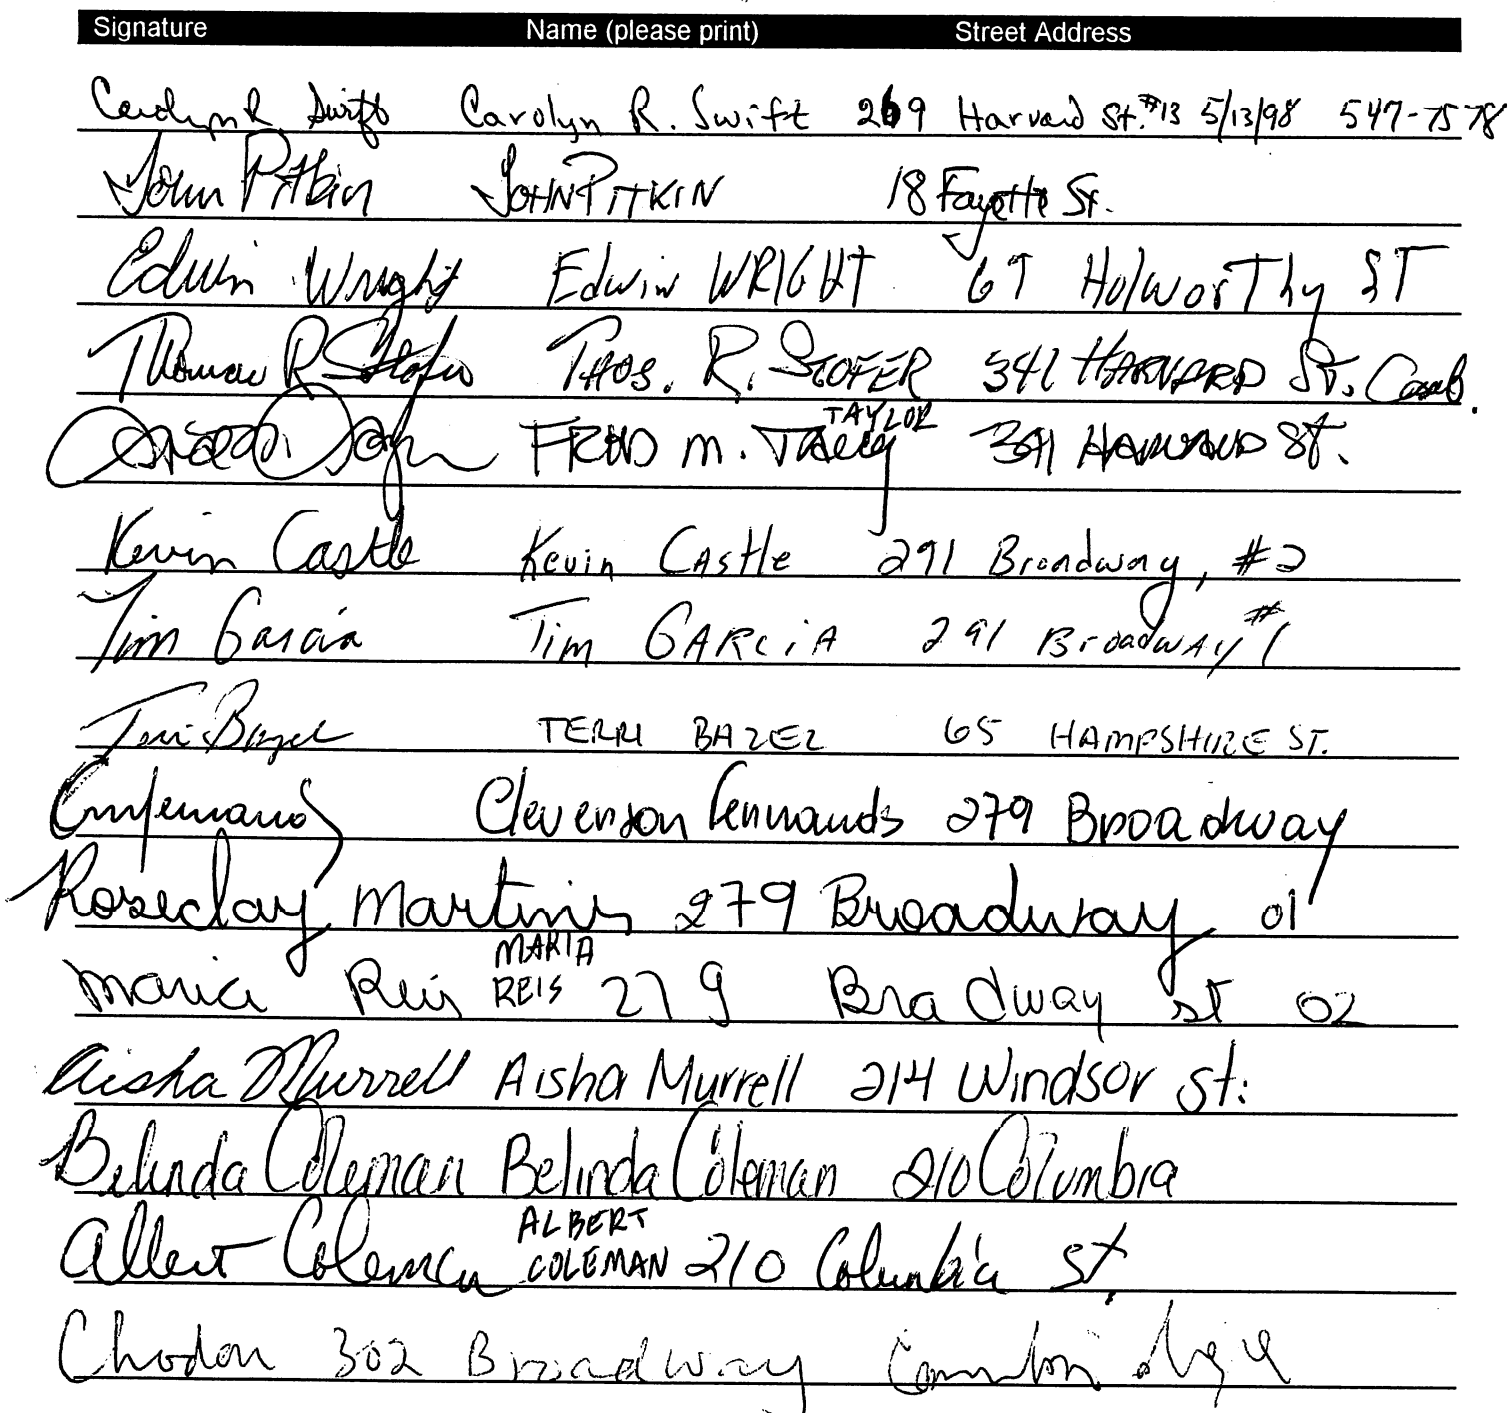 Signature Name (please print) Street Address
Carolyn R Swift Carolyn R. Swift 269 Harvard St. #13 5/13/98 547-7578
John Pitkin JOHN PITKIN 18 Fayette St.
Edwin Wright Edwin WRIGHT 67 Holworthy ST
Thomas R Stofer THOS. R. STOFER 341 HARVARD St. Camb.
TAYLOR
FRED M. 341 HARVARD St.
Kevin Castle Kevin CAstle 291 Broadway, #2
Tim Garcia Tim GARCiA 291 BroadwAy #1
Terri Bazel TERRI BAZEL 65 HAMPSHIRE ST.
Cleverson Fernands 279 Broadway
Roseclay Martins 279 Broadway 01
MARIA
Maria Reis REIS 279 Bradway st 02
Aisha Murrell Aisha Murrell 214 Windsor St.
Belinda Coleman Belinda Coleman 210 Columbia
ALBERT
Albert Coleman COLEMAN 210 Columbia St.
Chodon 302 Broadway